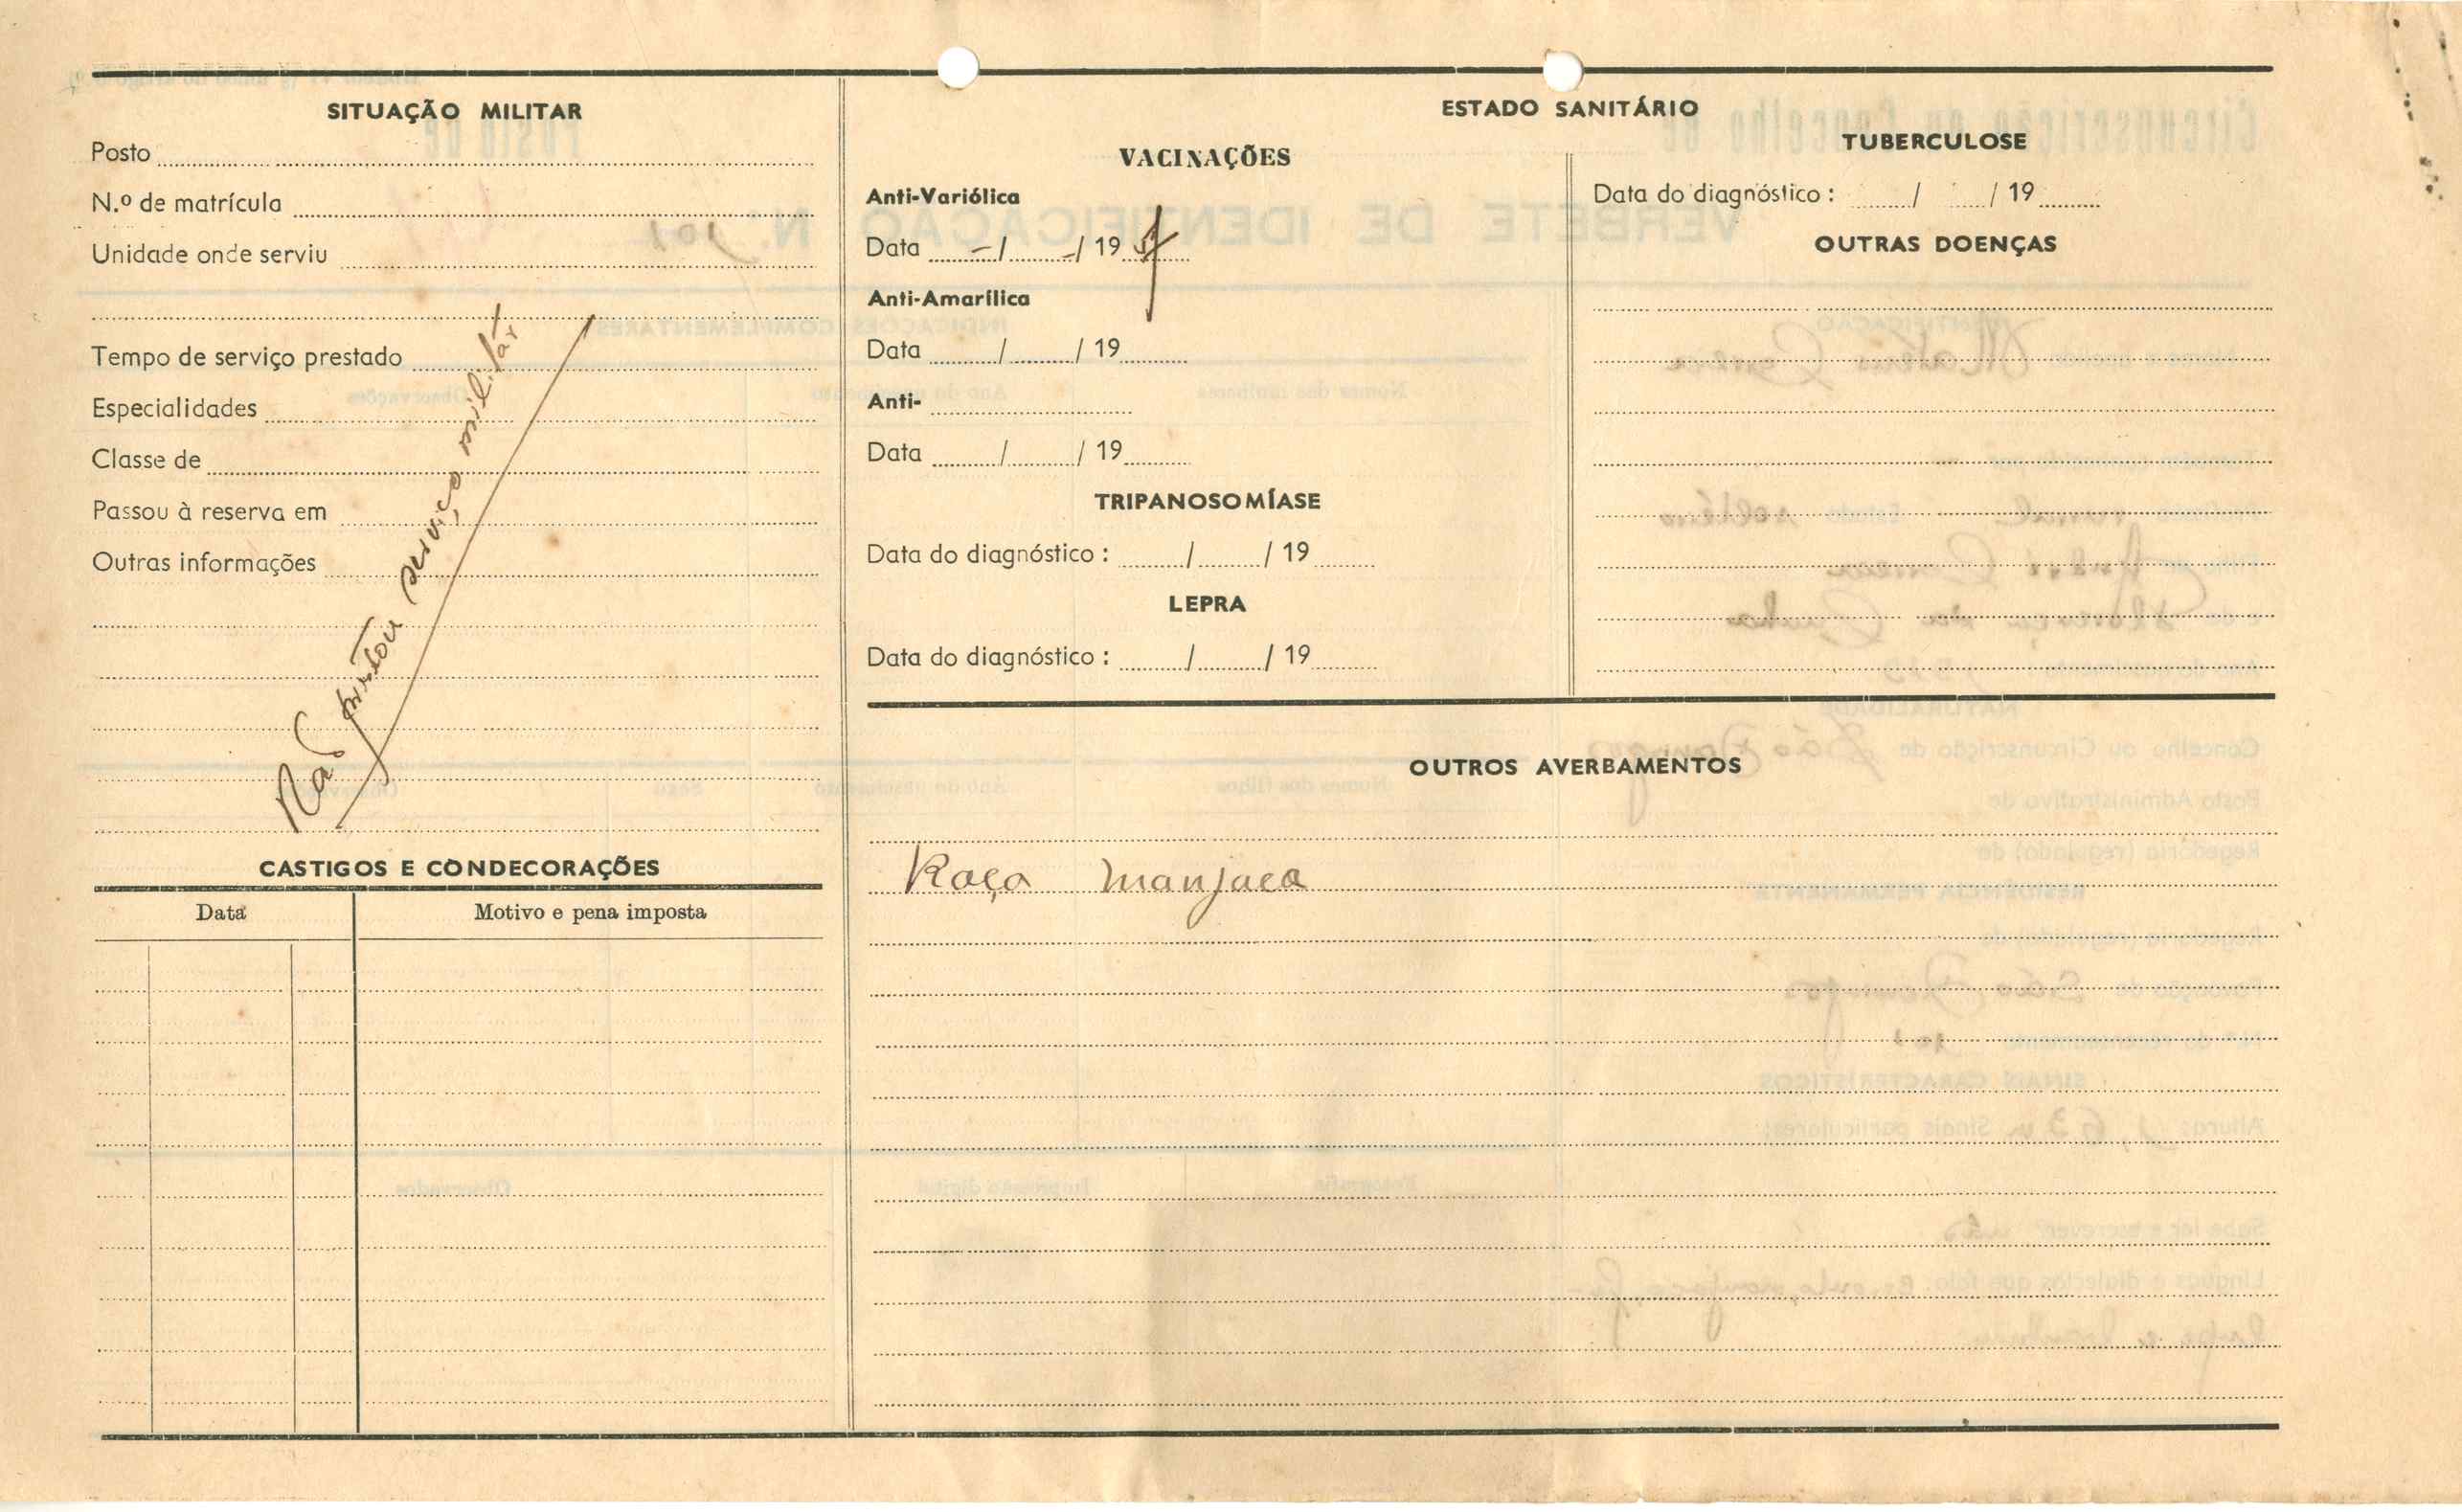 SITUAÇÃO MILITAR
Posto
N.º de matrícula
Unidade onde serviu
Tempo de serviço prestado
Especialidades
Classe de
Passou à reserva em
Outras informações
Não prestou serviço militar
CASTIGOS E CONDECORAÇÕES
Data Motivo e pena imposta
ESTADO SANITÁRIO
VACINAÇÕES
Anti-Variólica
Data -/ -/ 1957
Anti-Amarílica
Data / / 19
Anti-
Data / / 19
TRIPANOSOMÍASE
Data do diagnóstico : / / 19
LEPRA
Data do diagnóstico : / / 19
TUBERCULOSE
Data do diagnóstico : / / 19
OUTRAS DOENÇAS
OUTROS AVERBAMENTOS
Raça manjaca